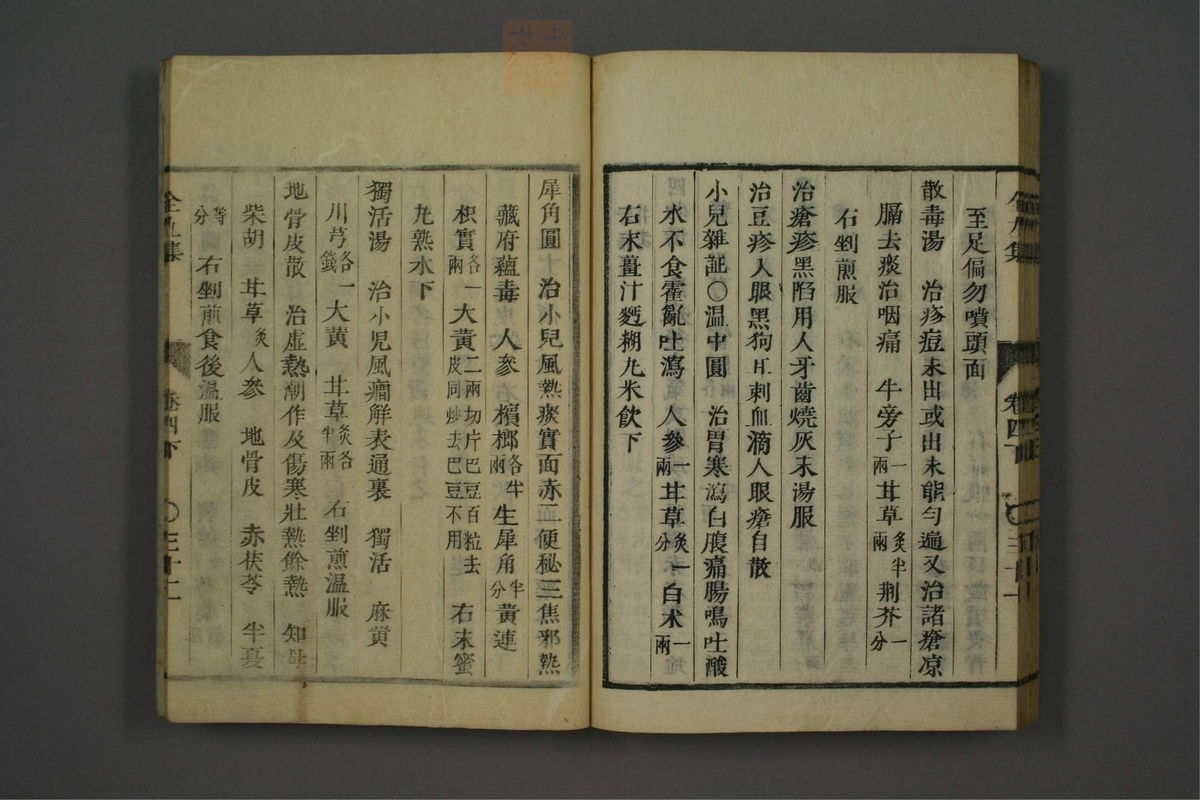 至足偏勿噴頭面
散毒湯　治疹痘未出或出未能勻遍又治諸瘡凉
膈去痰治咽痛　牛旁子一兩甘草炙半兩荆芥一分
右剉煎服
治瘡疹黑陷用人牙齒燒灰末湯服
治豆疹入眼黑狗耳刺血滴入眼瘡自散
小兒雜証〇温中圓　治胃寒瀉白腹痛腸鳴吐酸
水不食霍亂吐瀉　人參一兩甘草炙一分白术一兩
右末薑汁麪糊丸米飲下
卷四下
〇三十一
犀角圓　治小兒風熱痰實面赤二便秘三焦邪熱
藏府藴毒　人參　檳榔各半兩生犀角半分黄連
枳實各一兩大黄二兩切片巴豆百粒去皮同炒去巴豆不用　右末蜜
丸熟水下
獨活湯　治小児風癎解表通裏　獨活　麻黄
川芎各一錢大黄　甘草炙各半兩　右剉煎温服
地骨皮散　治虚熱潮作及傷寒壯熱餘熱　知母
柴胡　甘草炙人參　地骨皮　赤茯苓　半夏
等分　右剉煎食後温服
卷四下
〇三十二